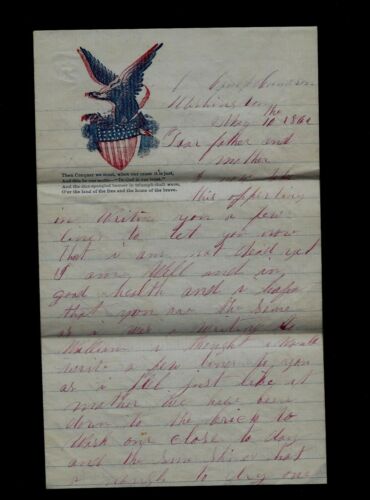 Camp Cameron
Washington
May the 10 1861
Dear father and
mother
Then Conquer we must, when our cause it is just,
And this be our motto—"In God is our trust!"
And the star-spangled banner in triumph shall wave,
O'er the land of the free and the home of the brave.
I now take
this
in writin you a few
lines to let you now
that i am not dead yet
I am Well and in
good health and i hope
that you are the same
as i was a writing to
William i thought i
write a few lines to you
as i feel just like it
mother We have been
down to the crick to
Wash our close to day
and the sun
a nough to dry